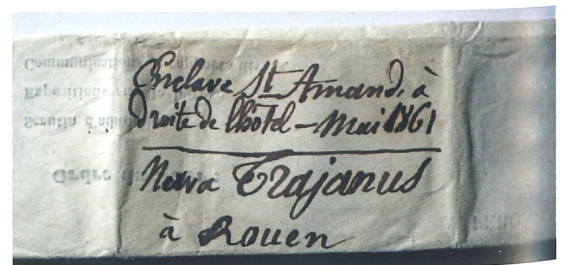 Enclave St Amand, à
droite de l'hôtel - Mai 1861
Nerva Trajanus
à Rouen